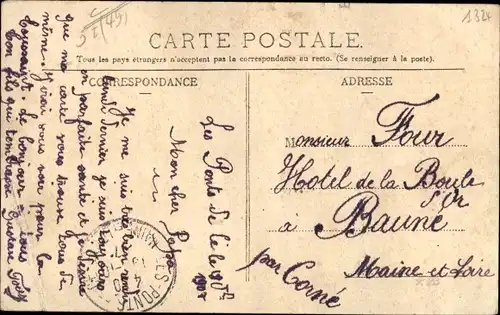 1324
CARTE POSTALE.
Tous les pays étrangers n'acceptent pas la correspondance au recto. (Se renseigner à la poste).
CORRESPONDANCE
ADRESSE
Les Ponts de Cé le
1908
Mon cher Papa
Je me suis très bien
lundi dernier je suis toujours
en parfaite santé et je désire
que ma carte vous trouve tous de
même. J'irai vous voir pour la
Le bonjour à tous
ton fils qui t'embrasse Gustave Four
LES PONTS
Monsieur Four
Hotel de la Boule
d'Or
à Bauné
par Corné
Maine et Loire